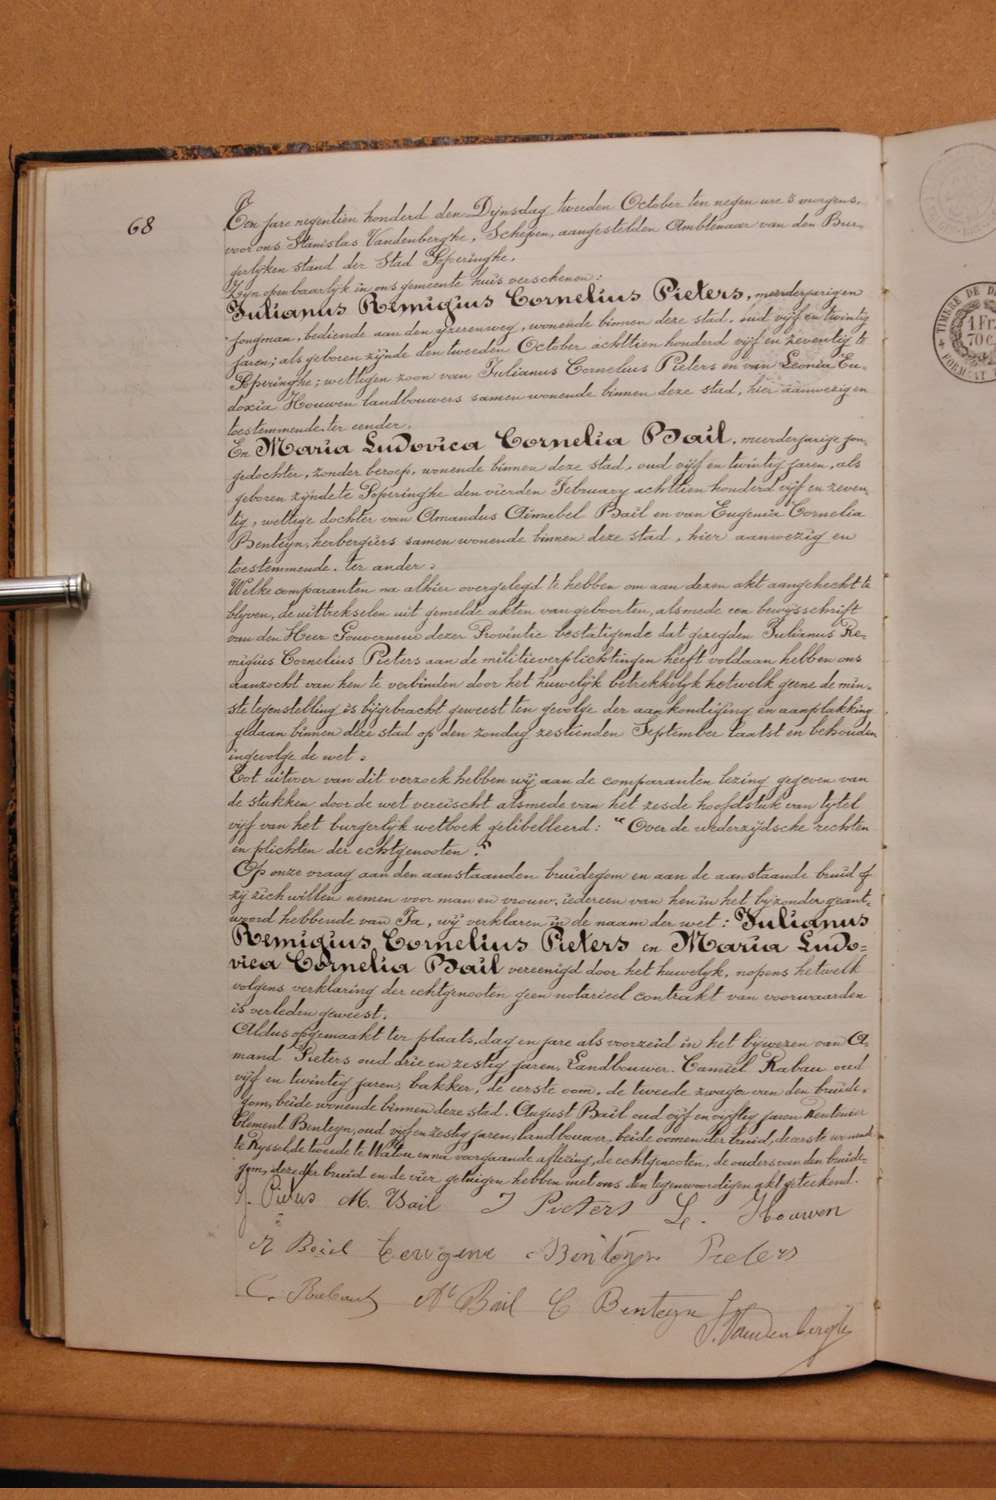 68
Ten jare negentien honderd den Dijnsdag tweeden October ten negen ure 's morgens,
voor ons Stanislas Vandenberghe, Schepen, aangestelden Ambtenaar van den Bur-
gerlijken stand der Stad Poperinghe.
Zijn openbaarlijk in ons gemeente huis verschenen:
Julianus Remigius Cornelius Pieters, meerderjarigen
jongman, bediende aan den yzerenweg, wonende binnen deze stad, oud vijf en twintig
jaren; als geboren zijnde den tweeden October achttien honderd vijf en zeventig te
Poperinghe; wettigen zoon van Julianus Cornelius Pieters en van Leonia Eu-
doxia Houwen landbouwers samen wonende binnen deze stad, hier aanwezig en
toestemmende. ter eender.
En Maria Ludovica Cornelia Bail, meerderjarige jon-
gedochter, zonder beroep, wonende binnen deze stad, oud vijf en twintig jaren, als
geboren zijnde te Poperinghe den vierden February achttien honderd vijf en zeven-
tig, wettige dochter van Amandus Aimabel Bail en van Eugenia Cornelia
Benteyn, herbergiers samen wonende binnen deze stad, hier aanwezig en
toestemmende. ter ander.
Welke comparanten na alhier overgelegd te hebben om aan dezen akt aangehecht te
blyven, de uittrekselen uit gemelde akten van geboorten, alsmede een bewysschrift
van den Heer Gouverneur dezer Provintie bestatigende dat gezegden Julianus Re-
migius Cornelius Pieters aan de militieverplichtingen heeft voldaan hebben ons
aanzocht van hen te verbinden door het huwelijk betrekkelyk hetwelk geene de min-
ste tegenstelling is bijgebracht geweest ten gevolge der aankondiging en aanplakking
gedaan binnen deze stad op den zondag zestienden September laatst en behouden
ingevolge de wet.
Tot uitvoer van dit verzoek hebben wij aan de comparanten lezing gegeven van
de stukken door de wet vereischt alsmede van het zesde hoofdstuk van tytel
vijf van het burgerlijk wetboek gelibelleerd: "Over de wederzijdsche rechten
en plichten der echtgenooten."
Op onze vraag aan den aanstaanden bruidegom en aan de aanstaande bruid of
zij zich willen nemen voor man en vrouw, iedereen van hen in het byzonder geant-
woord hebbende van Ja, wij verklaren in de naam der wet: Julianus
Remigius Cornelius Pieters en Maria Ludo-
vica Cornelia Bail vereenigd door het huwelyk, nopens hetwelk
volgens verklaring der echtgenooten geen notarieel contrakt van voorwaarden
is verleden geweest.
Aldus opgemaakt ter plaats, dag en jare als voorzeid in het bijwezen van A-
mand Pieters oud drie en zestig jaren, Landbouwer. Camiel Rabau oud
vijf en twintig jaren, bakker, de eerste oom, de tweede zwager van den bruide-
gom, beide wonende binnen deze stad. August Bail oud vijf en vijftig jaren Rentenier
Clement Benteyn, oud vijf en zestig jaren, landbouwer, beide oomen der bruid, de eerste wonende
te Ryssel, de tweede te Watou en na voorgaande aflezing, de echtgenooten, de ouders van den bruide-
gom, deze der bruid en de vier getuigen hebben met ons den tegenwoordigen akt geteekend.
J. Pieters M. Bail J Pieters L. Houwen
A Bail Eeugene Benteyn Pieters
C. Rabau At Bail C Benteyn
S. Vandenberghe
TIMBRE DE D
1 Fr.
70 C
FORMAT